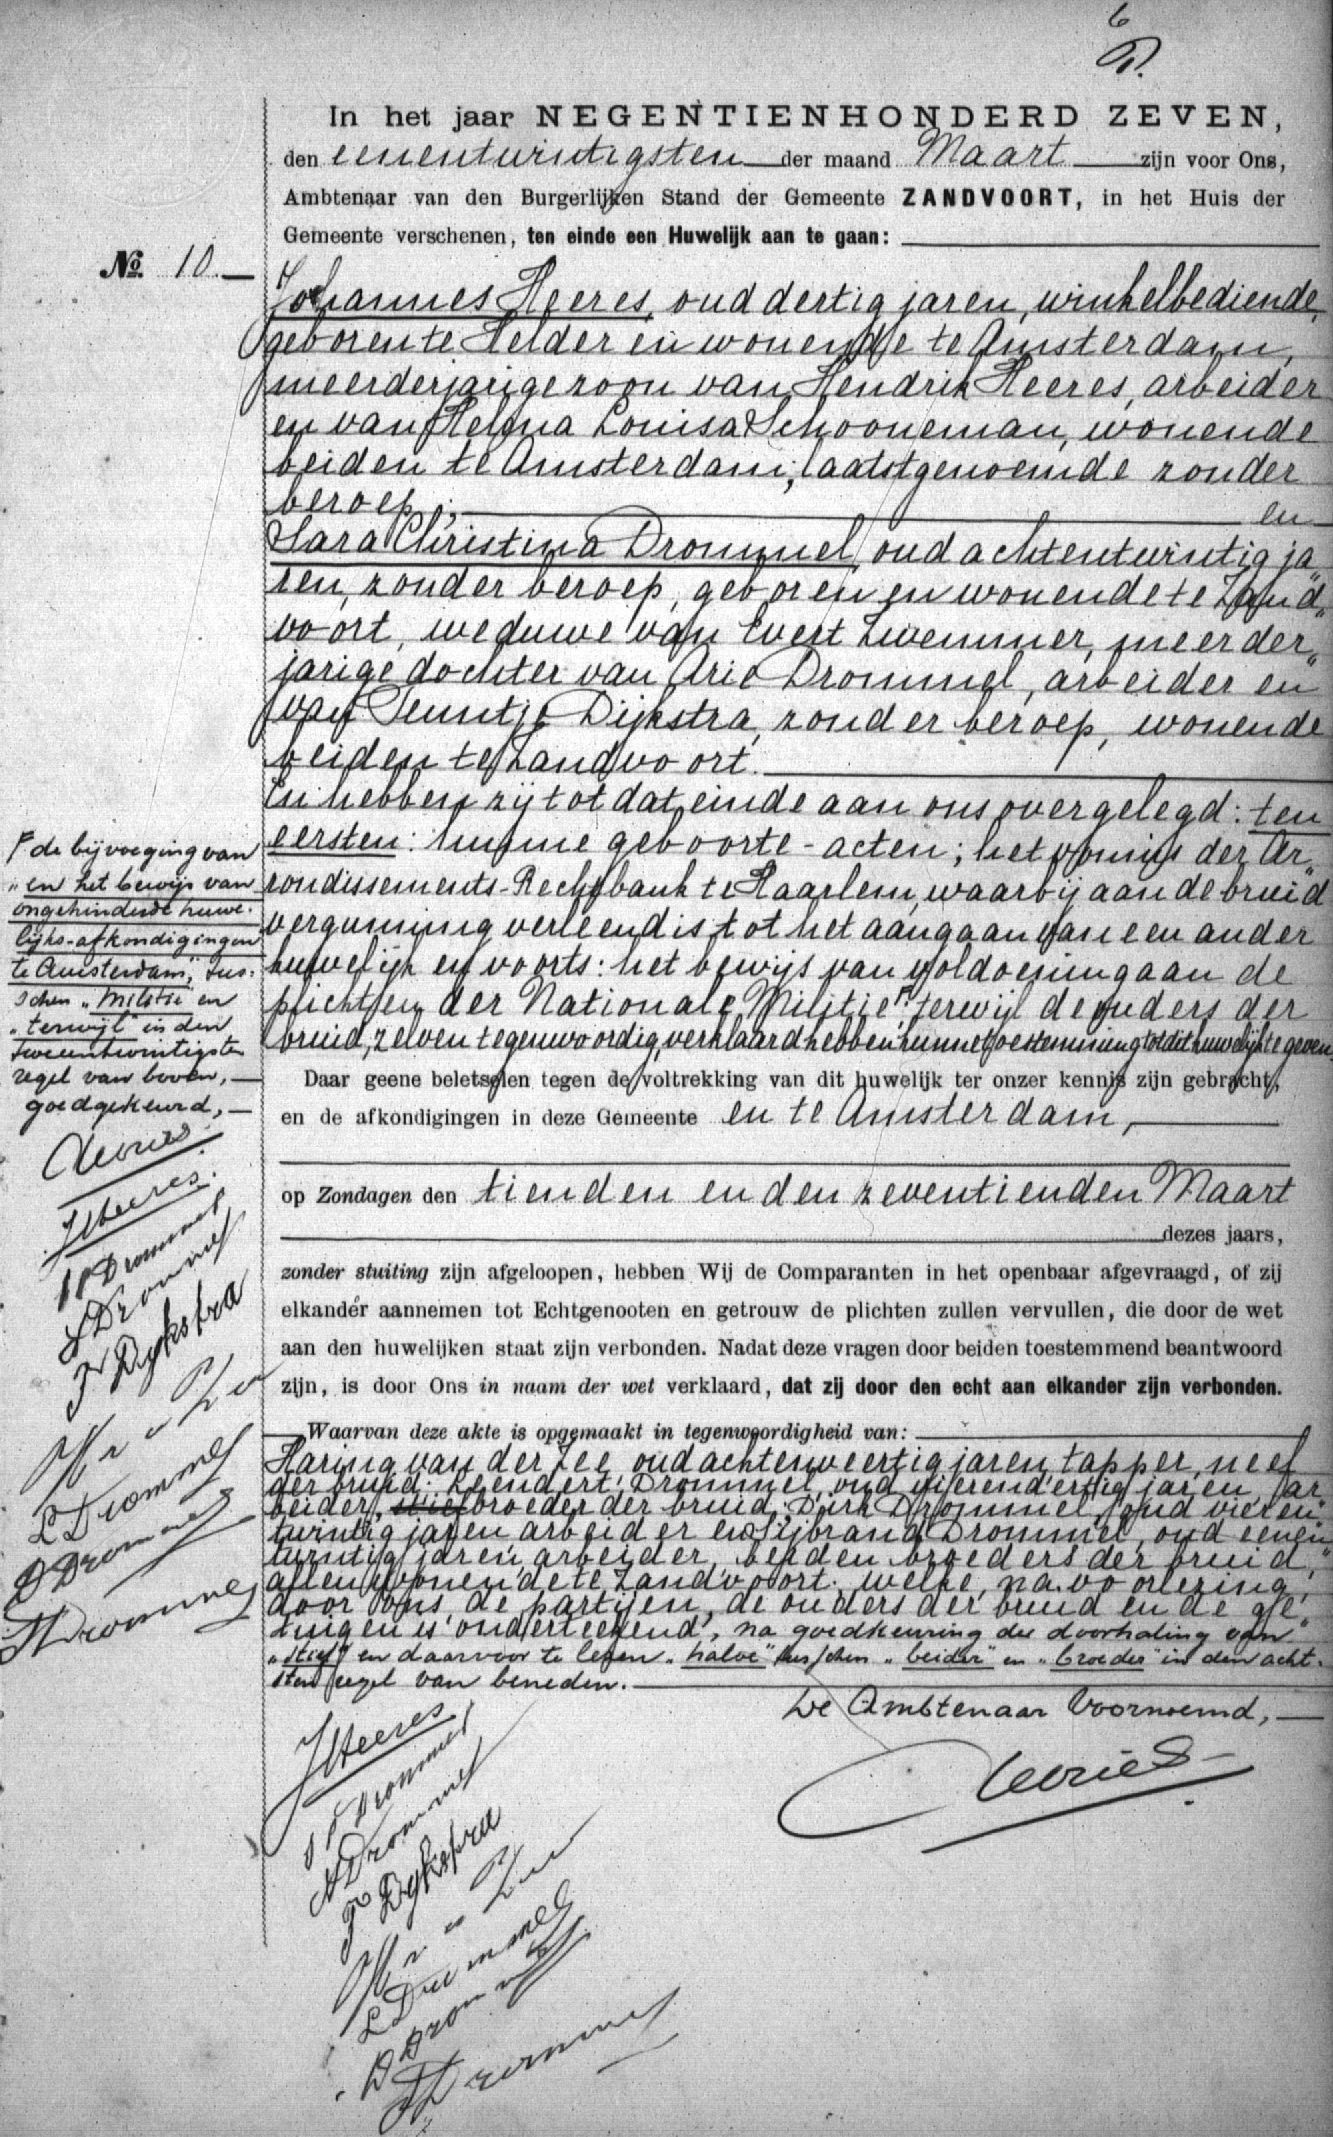 6
In het jaar NEGENTIENHONDERD ZEVEN,
den eenentwintigsten der maand Maart zijn voor Ons,
Ambtenaar van den Burgerlijken Stand der Gemeente ZANDVOORT, in het Huis der
Gemeente verschenen, ten einde een Huwelijk aan te gaan:
No. 10.
Johannes Heeres, oud dertig jaren, winkelbediende,
geboren te Helder en wonende te Amsterdam,
meerderjarige zoon van Hendrik Heeres, arbeider
en van Helena Louisa Schooneman, wonende
beiden te Amsterdam, laatstgenoemde zonder
beroep; en
Sara Christina Drommel, oud achtentwintig ja
ren, zonder beroep, geboren en wonende te Zand„
voort, weduwe van Evert Zwemmer, meerder„
jarige dochter van Arie Drommel, arbeider en
van Teuntje Dijkstra, zonder beroep, wonende
beiden te Zandvoort.
En hebben zij tot dat einde aan ons overgelegd: ten
eersten: hunne geboorte-acten; het vonnis der Ar
rondissements-Rechtbank te Haarlem, waarbij aan de bruid
vergunning verleend is tot het aangaan van een ander
huwelijk en voorts: het bewijs van voldoening aan de
plichten der Nationale Militie, terwijl de ouders der
bruid, zelven tegenwoordig, verklaard hebben hunne toestemming tot dit huwelijk te geven.
de bijvoeging van
„en het bewijs van
ongehinderde huwe-
lijks-afkondigingen
te Amsterdam," tus-
schen „militie en
„terwijl" in den
tweeentwintigsten
regel van boven,
goedgekeurd,
JHeeres.
SCDrommel
ADrommel
T Dykstra
H v d Zee
L Drommel
D Drommel
SDrommel
Daar geene beletselen tegen de voltrekking van dit huwelijk ter onzer kennis zijn gebracht,
en de afkondigingen in deze Gemeente en te Amsterdam,
op Zondagen den tienden en den zeventienden Maart
dezes jaars,
zonder stuiting zijn afgeloopen, hebben Wij de Comparanten in het openbaar afgevraagd, of zij
elkander aannemen tot Echtgenooten en getrouw de plichten zullen vervullen, die door de wet
aan den huwelijken staat zijn verbonden. Nadat deze vragen door beiden toestemmend beantwoord
zijn, is door Ons in naam der wet verklaard, dat zij door den echt aan elkander zijn verbonden.
Waarvan deze akte is opgemaakt in tegenwoordigheid van:
Haring van der Zee, oud achtenveertig jaren, tapper, neef
der bruid; Leendert Drommel, oud vijfendertig jaren, ar
beider, stiefbroeder der bruid; Dirk Drommel, oud vieren„
twintig jaren arbeider en Sijbrand Drommel, oud eenen„
twintig jaren, arbeider, beiden broeders der bruid,
allen wonende te Zandvoort, welke, na voorlezing,
door ons, de partijen, de ouders der bruid en de ge„
tuigen is onderteekend, na goedkeuring der doorhaling van
„stief" en daarvoor te lezen „halve" tusschen „beider" en „broeder" in den acht-
sten regel van beneden.
De Ambtenaar Voornoemd,
JHeeres
SCDrommel
ADrommel
T Dykstra
H v d Zee
L Drommel
D Drommel
SDrommel